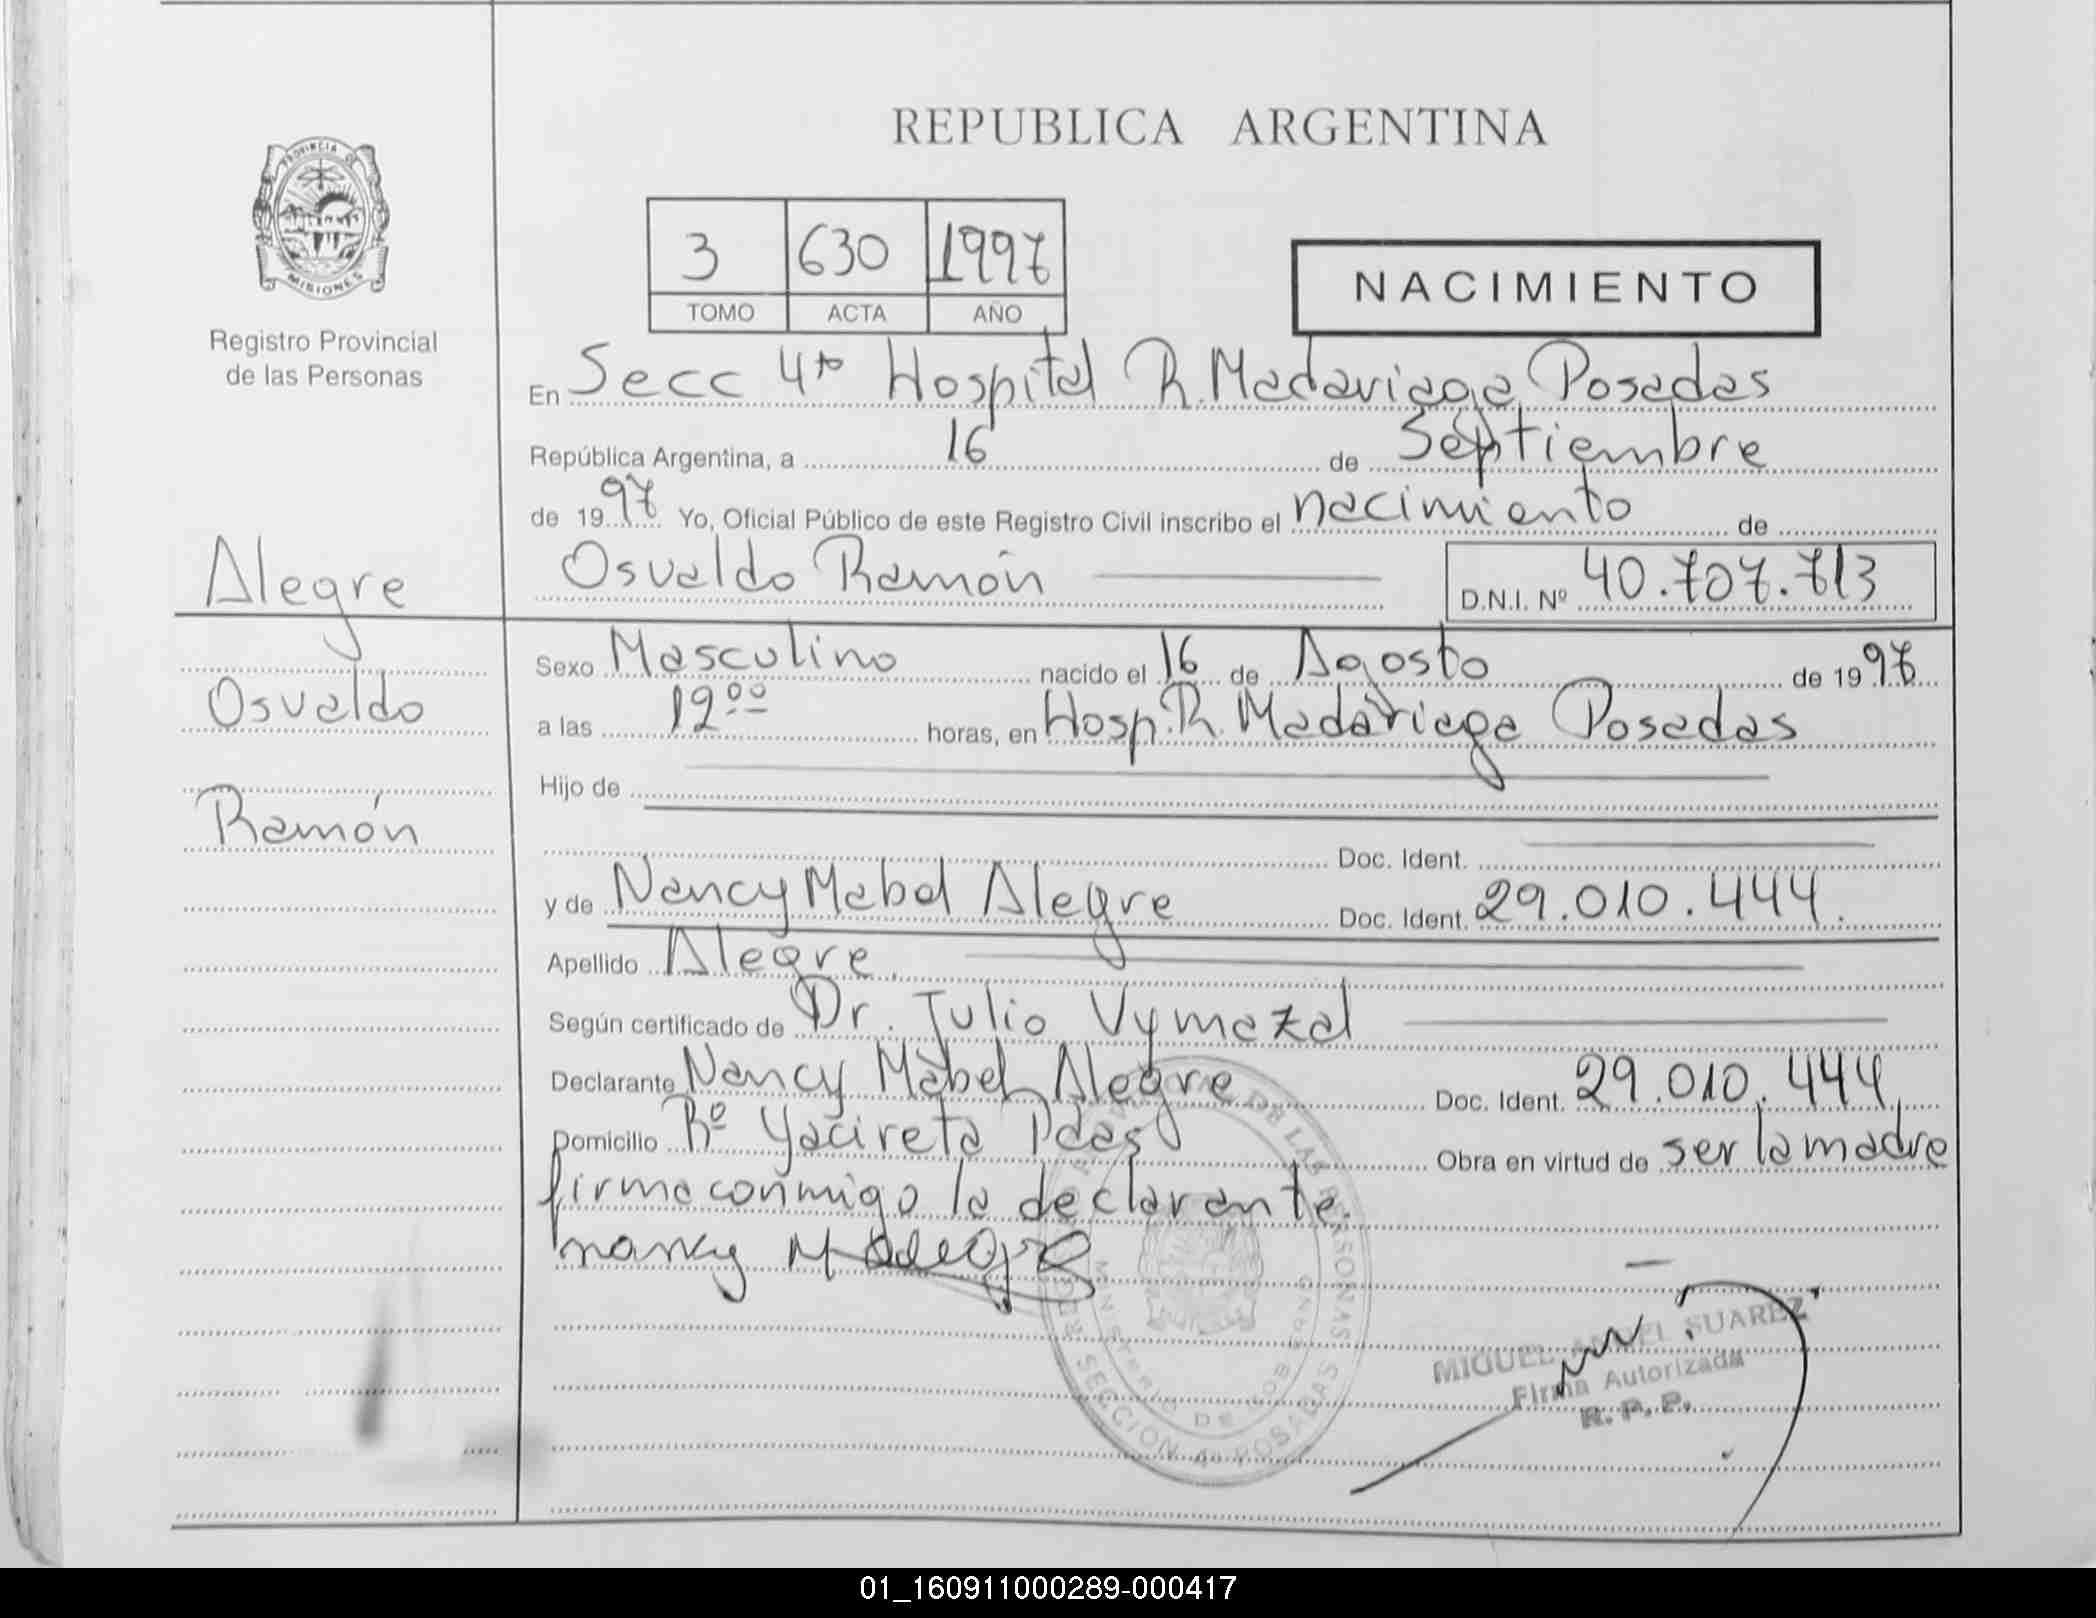 REPUBLICA ARGENTINA
PROVINCIA DE
MISIONES
Registro Provincial
de las Personas
3 630 1997
TOMO ACTA AÑO
NACIMIENTO
En Secc 4ta Hospital R. Madariaga Posadas
República Argentina, a 16 de Septiembre
de 1997 Yo, Oficial Público de este Registro Civil inscribo el nacimiento de
Osvaldo Ramón D.N.I. Nº 40.707.713
Alegre
Osvaldo
Ramón
Sexo Masculino nacido el 16 de Agosto de 1997
a las 12ºº horas, en Hosp. R. Madariaga Posadas
Hijo de
Doc. Ident.
y de Nancy Mabel Alegre Doc. Ident. 29.010.444.
Apellido Alegre
Según certificado de Dr. Julio Vymazal
Declarante Nancy Mabel Alegre Doc. Ident. 29.010.444
Domicilio Bº Yacireta Pdas Obra en virtud de ser la madre
firma conmigo la declarante.
nancy M Alegre
DE LAS PERSONAS
MINISTERIO DE GOBIERNO
SECCION 4ª POSADAS
MIGUEL ANGEL SUAREZ
Firma Autorizada
R. P. P.
01_160911000289-000417